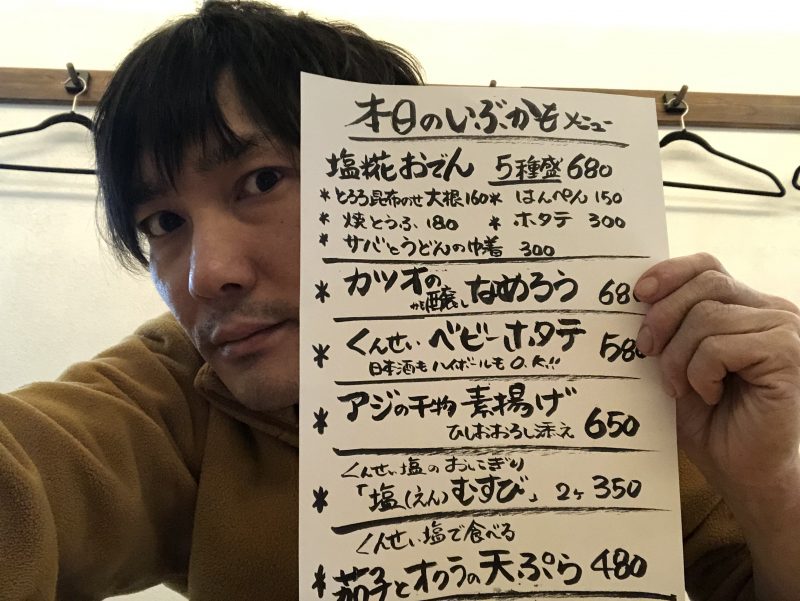 本日のいぶかもメニュー
塩糀おでん 5種盛 680
*とろろ昆布のせ大根160 * はんぺん 150
* 焼とうふ 180 * ホタテ 300
* サバとうどんの巾着 300
* カツオのから醸しなめろう 680
* くんせいベビーホタテ 580
日本酒もハイボールもO.K.!!
* アジの干物 素揚げ
ひしおおろし添え 650
くんせい塩のおにぎり
* 「塩(えん)むすび」 2ヶ 350
くんせい塩で食べる
* 茄子とオクラの天ぷら 480